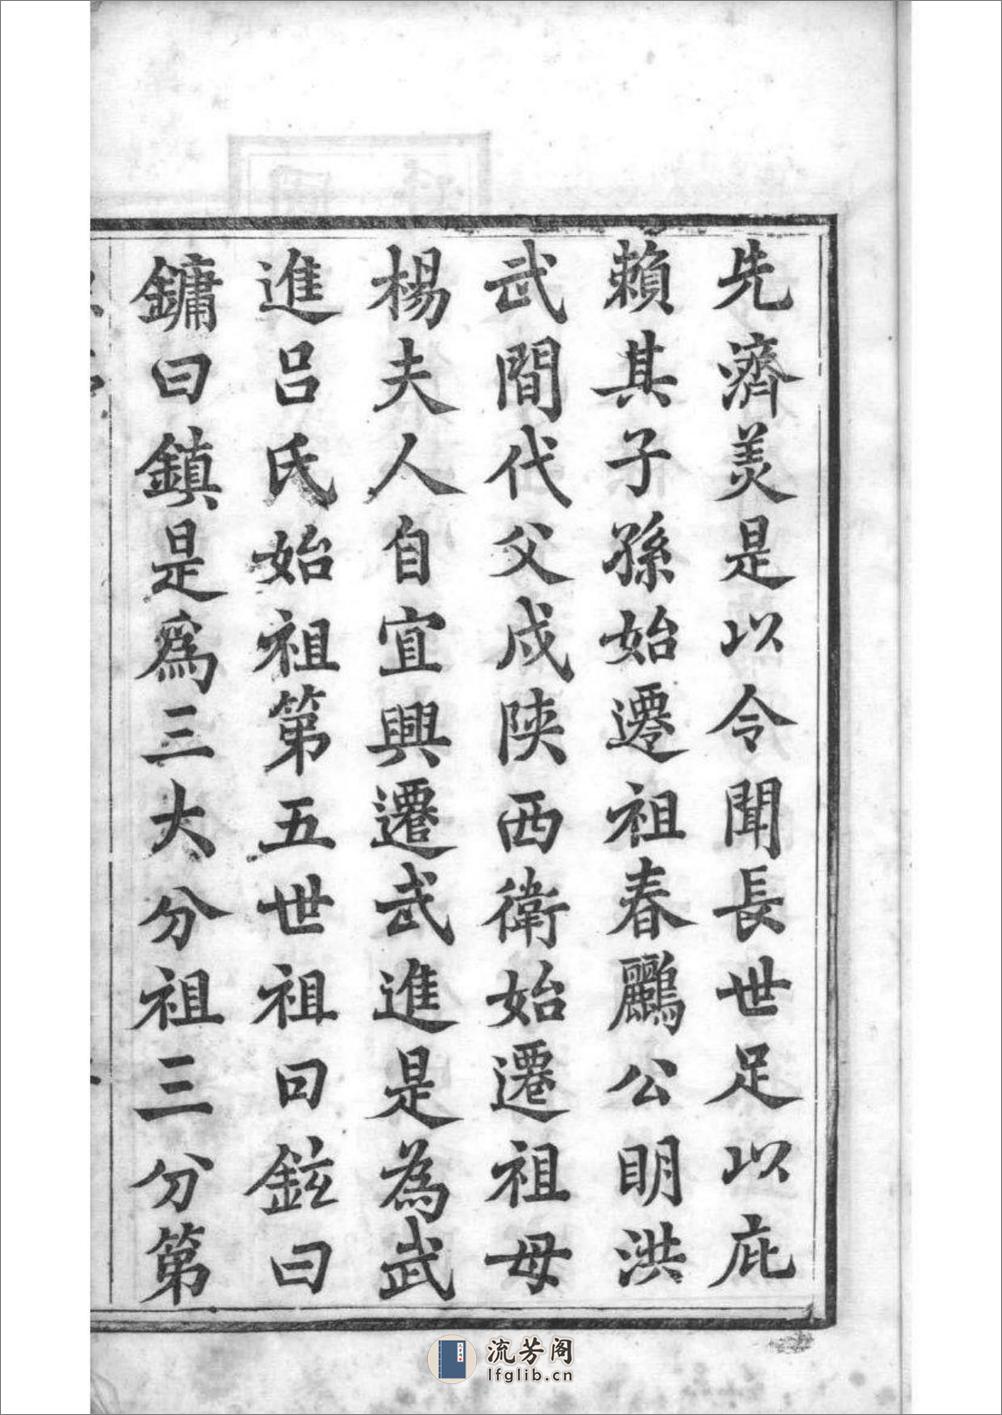 先濟美是以令聞長世足以庇
賴其子孫始遷祖春鸝公明洪
武間代父戍陝西衛始遷祖母
楊夫人自宜興遷武進是為武
進呂氏始祖第五世祖曰鉉曰
鏞曰鎮是為三大分祖三分第
流芳阁
lfglib.cn